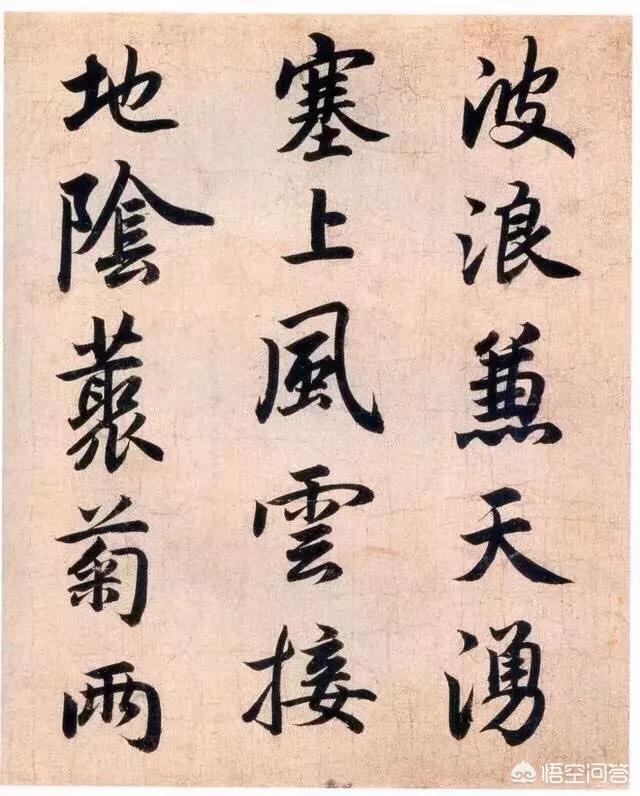 波浪兼天湧
塞上風雲接
地隂藂菊兩
悟空问答